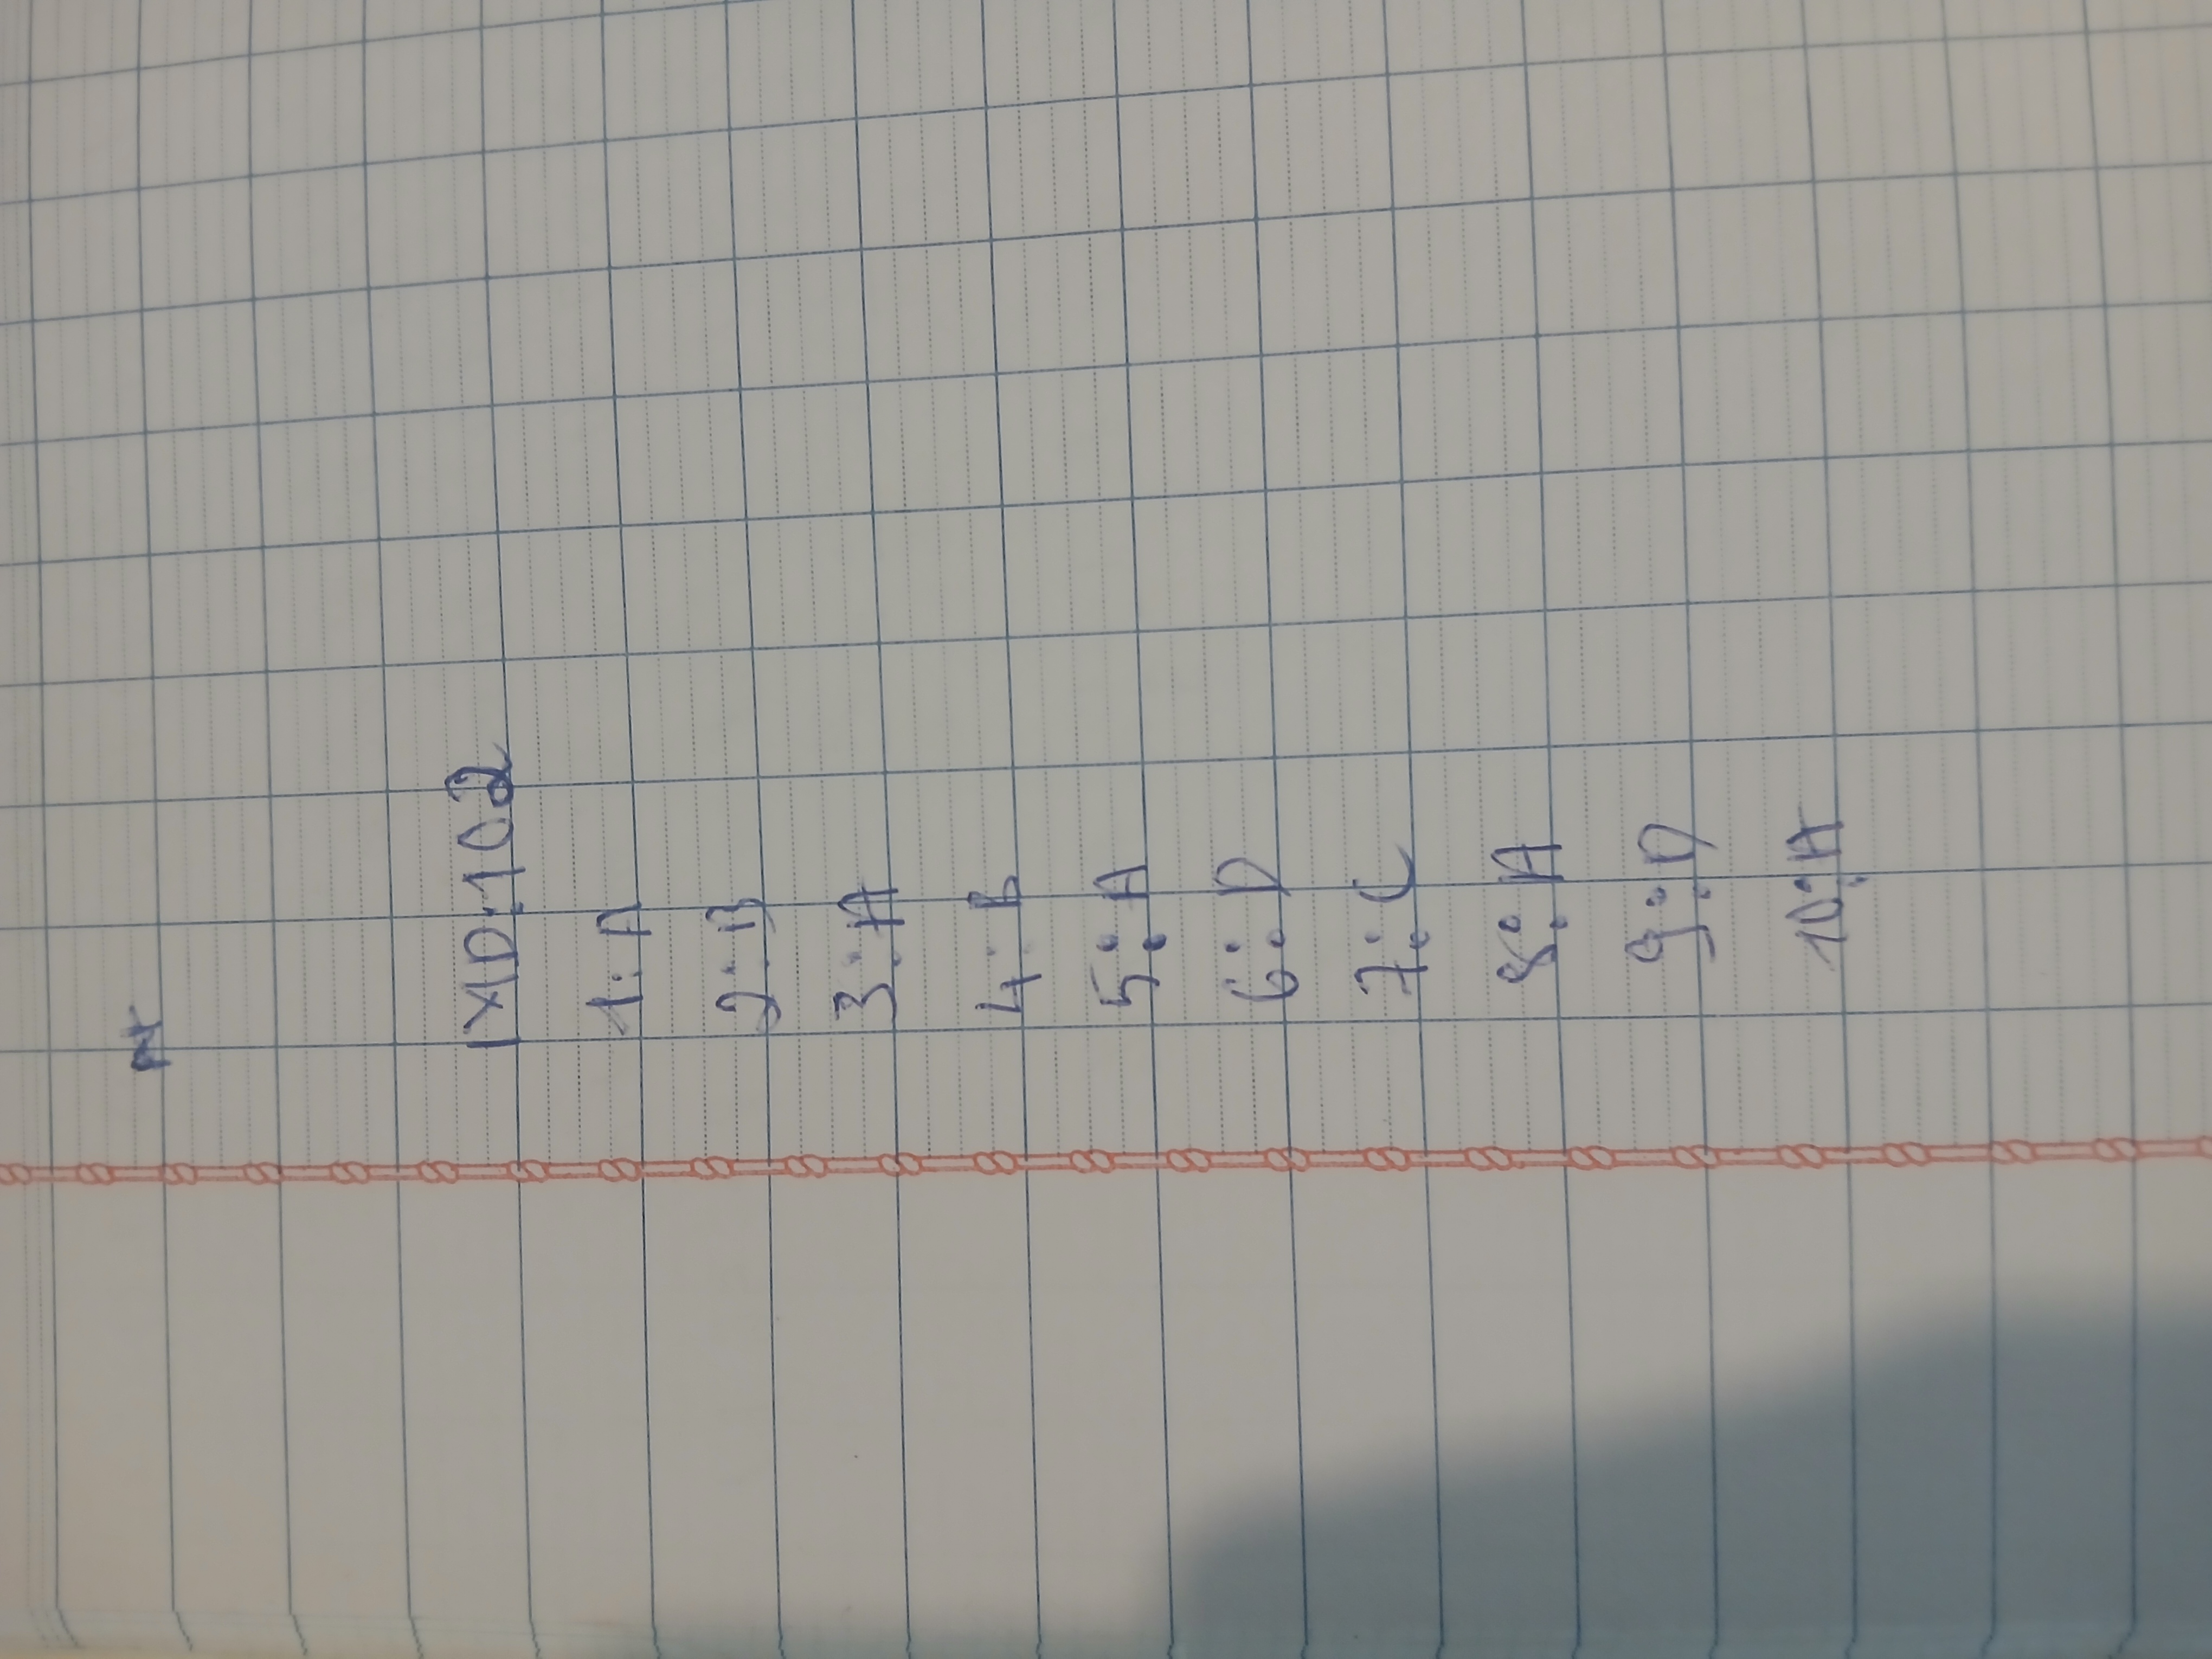 MD:102
1: A
2: B
3: A
4: B
5: A
6: D
7: C
8: A
9: D
10: A